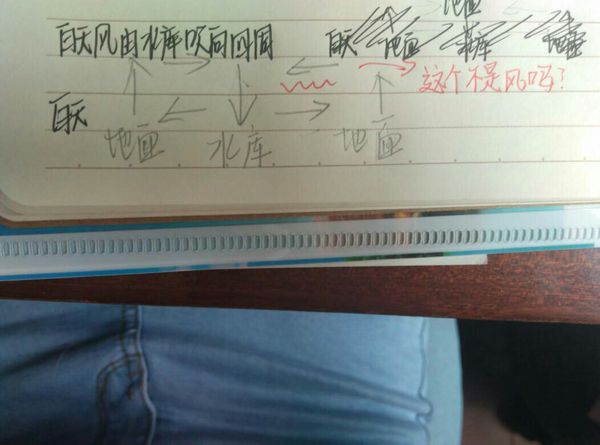 地面
白天风由水库吹向四周
白天 地面 水库 地面
这个不是风吗?
白天
地面 水库 地面